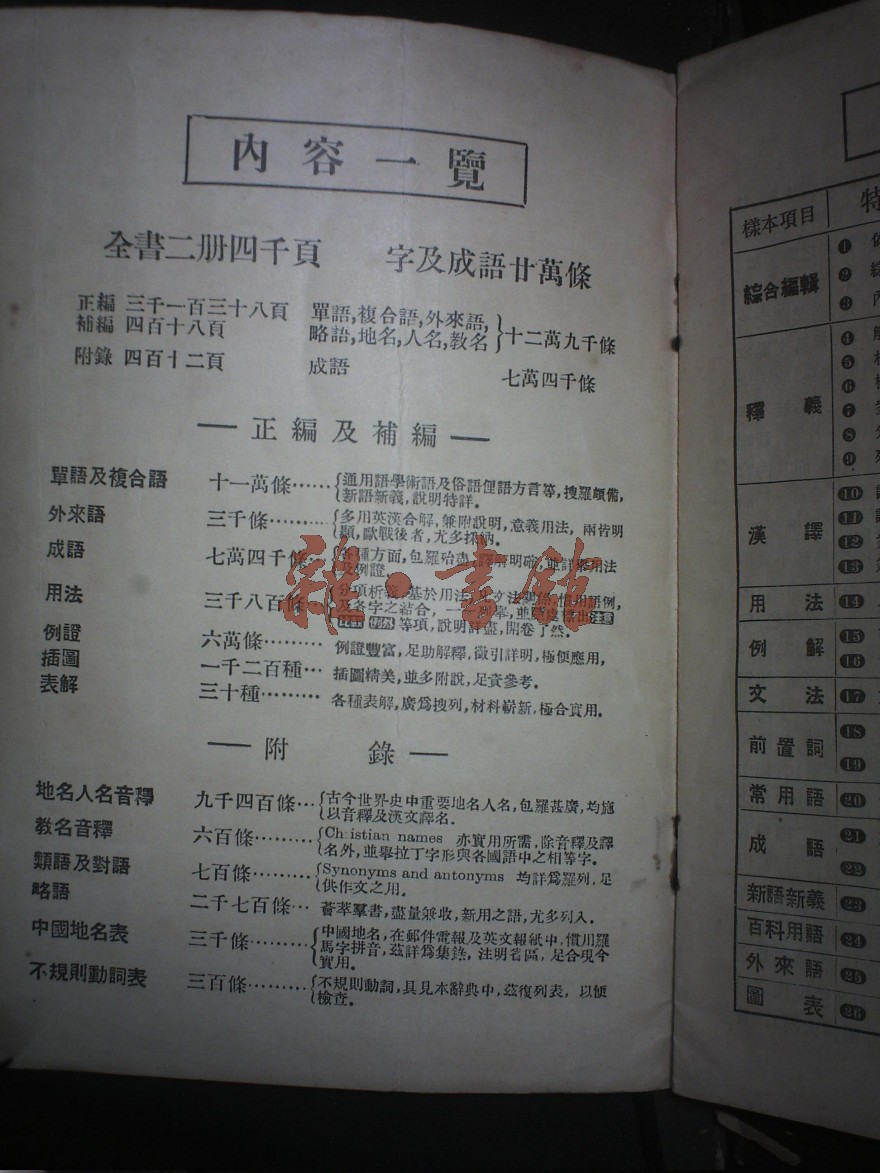 內容一覽
全書二册四千頁 字及成語廿萬條
正編 三千一百三十八頁 單語,複合語,外來語,
補編 四百十八頁 略語,地名,人名,教名 十二萬九千條
附錄 四百十二頁 成語 七萬四千條
正編及補編
單語及複合語 十一萬條…… 通用語學術語及俗語俚語方言等,搜羅頗備,
新語新義,說明特詳。
外來語 三千條……… 多用英漢合解,兼附說明,意義用法,兩皆明
顯,歐戰後者,尤多採納。
成語 七萬四千條… 各種方面,包羅殆盡,譯解明確,並詳舉用法
及例證。
用法 三千八百條… 分項析義,基於用法,及文法關係,慣用語例,
及各字之結合,一一列舉,並隨處標出注意
等項,說明詳盡,開卷了然。
例證 六萬條……… 例證豐富,足助解釋,徵引詳明,極便應用,
插圖 一千二百種… 插圖精美,並多附說,足資參考。
表解 三十種……… 各種表解,廣爲搜列,材料嶄新,極合實用。
附錄
地名人名音釋 九千四百條… 古今世界史中重要地名人名,包羅甚廣,均施
以音釋及漢文譯名。
教名音釋 六百條……… Christian names 亦實用所需,除音釋及譯
名外,並舉拉丁字形與各國語中之相等字。
類語及對語 七百條……… Synonyms and antonyms 均詳爲羅列,足
供作文之用。
略語 二千七百條… 薈萃羣書,盡量兼收,新用之語,尤多列入。
中國地名表 三千條……… 中國地名,在郵件電報及英文報紙中,慣用羅
馬字拼音,茲詳爲集錄,注明省區,足合現今
實用。
不規則動詞表 三百條……… 不規則動詞,具見本辭典中,茲復列表,以便
檢查。
雜·書館
樣本項目 特
綜合編輯 ❶
❷
❸
釋義 ❹
❺
❻
❼
❽
❾
漢譯 ❿
⓫
⓬
⓭
用法 ⓮
例解 ⓯
⓰
文法 ⓱
前置詞 ⓲
⓳
常用語 ⓴
成語 21
22
新語新義 23
百科用語 24
外來語 25
圖表 26